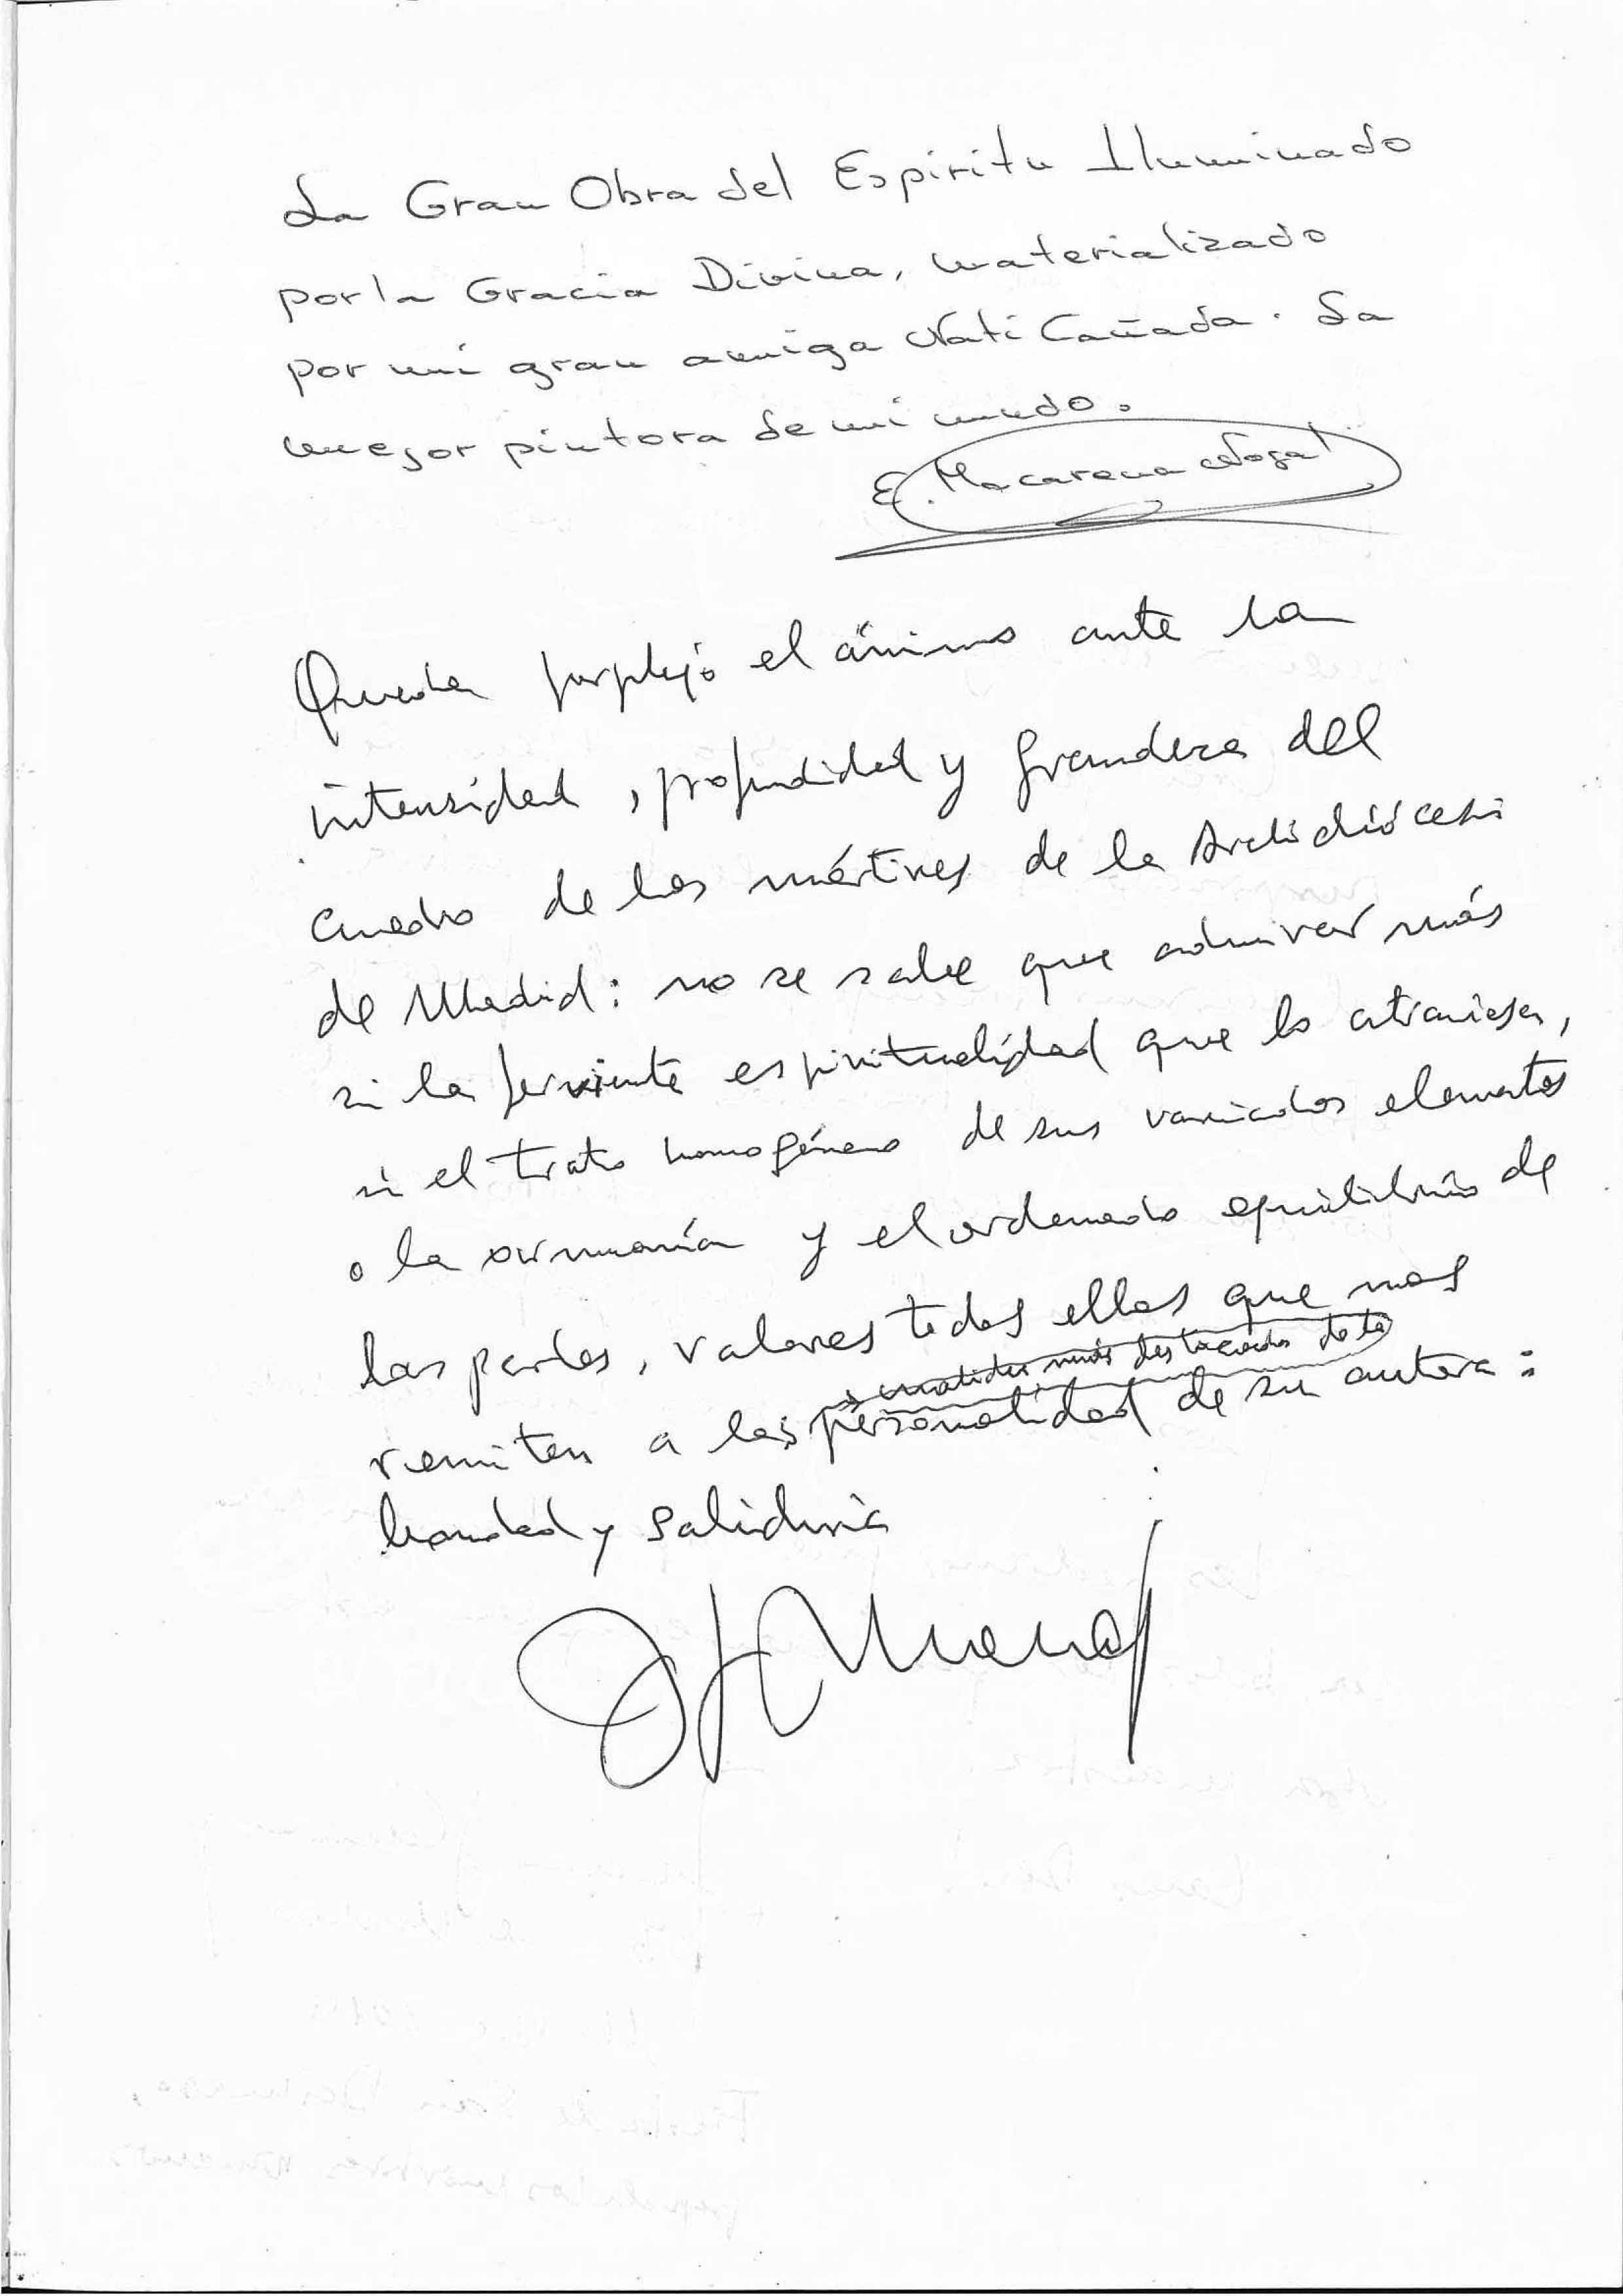 La Gran Obra del Espiritu Iluminado
por la Gracia Divina, materializado
por mi gran amiga Nati Cañada. La
mejor pintora de mi mundo.
E. Macarena Nogal
Queda perplejo el ánimo ante la
intensidad, profundidad y grandeza del
cuadro de los mártires de la Archidiócesis
de Madrid: no se sabe que admirar más
si la ferviente espiritualidad que lo atraviesa,
si el trato homogéneo de sus variados elementos
o la armonía y el ordenado equilibrio de
las partes, valores todos ellos que nos
más destacados de la
remiten a las personalidad de su autora:
bondad y sabiduría